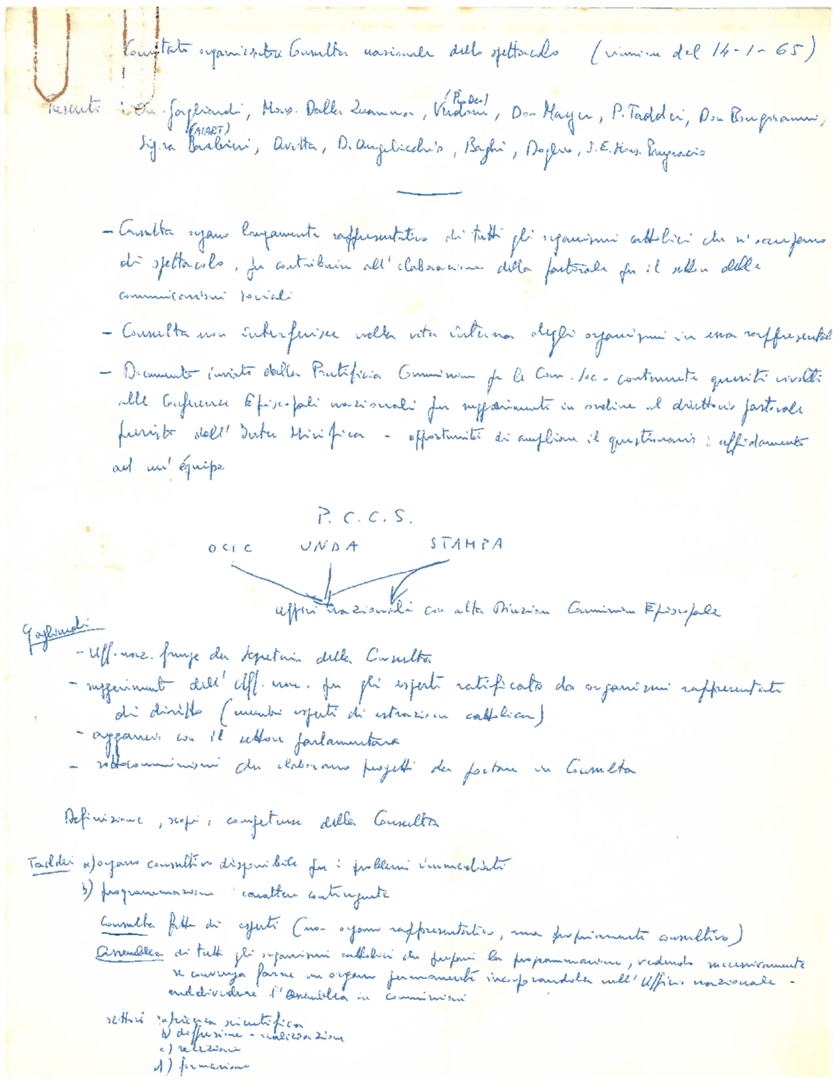 Comitato organizzatore Consulta nazionale dello spettacolo (riunione del 14-1-65)
(ProDeo)
Presenti: On. Gagliardi, Mons. Dalla Zuanna, Verdone, Don Mayer, P. Taddei, Don
(AIART)
Sig.ra Barbini, Avetta, D'Angelicchio, Baghi, Doglio, S.E. Mons.
- Consulta organo largamente rappresentativo di tutti gli organismi cattolici che si occupano
di spettacolo, per contribuire all'elaborazione della pastorale per il settore delle
comunicazioni sociali
- Consulta non interferisce nella vita interna degli organismi in essa
- Documento inviato dalla Pontificia Commissione per le Com. Soc. contenente quesiti rivolti
alle Conferenze Episcopali nazionali per suggerimenti in ordine al direttorio pastorale
previsto dall'Inter Mirifica - opportunità di ampliare il questionario: affidamento
ad un'équipe
P.C.C.S.
OCIC UNDA STAMPA
Uffici nazionali con alta Direzione Commissione Episcopale
Gagliardi
- Uff. naz. funge da segreteria della Consulta
- suggerimenti dell'Uff. naz. per gli esperti ratificato da organismi rappresentati
di diritto (membri esperti di estrazione cattolica)
- aggancio con il settore parlamentare
- sottocommissioni che elaborano progetti da portare in Consulta
Definizione, scopi, competenze della Consulta
Taddei a) organo consultivo disponibile per i problemi immediati
b) programmazione: carattere contingente
Consulta fatta di esperti (non organo rappresentativo, ma propriamente consultivo)
Assemblea di tutti gli organismi cattolici che prepari la programmazione, vedendo successivamente
se convenga farne un organo permanente incorporandola nell'Ufficio nazionale -
suddividere l'Assemblea in commissioni
settori: a) ricerca scientifica
b) diffusione - realizzazione
c) recezione
d) formazione